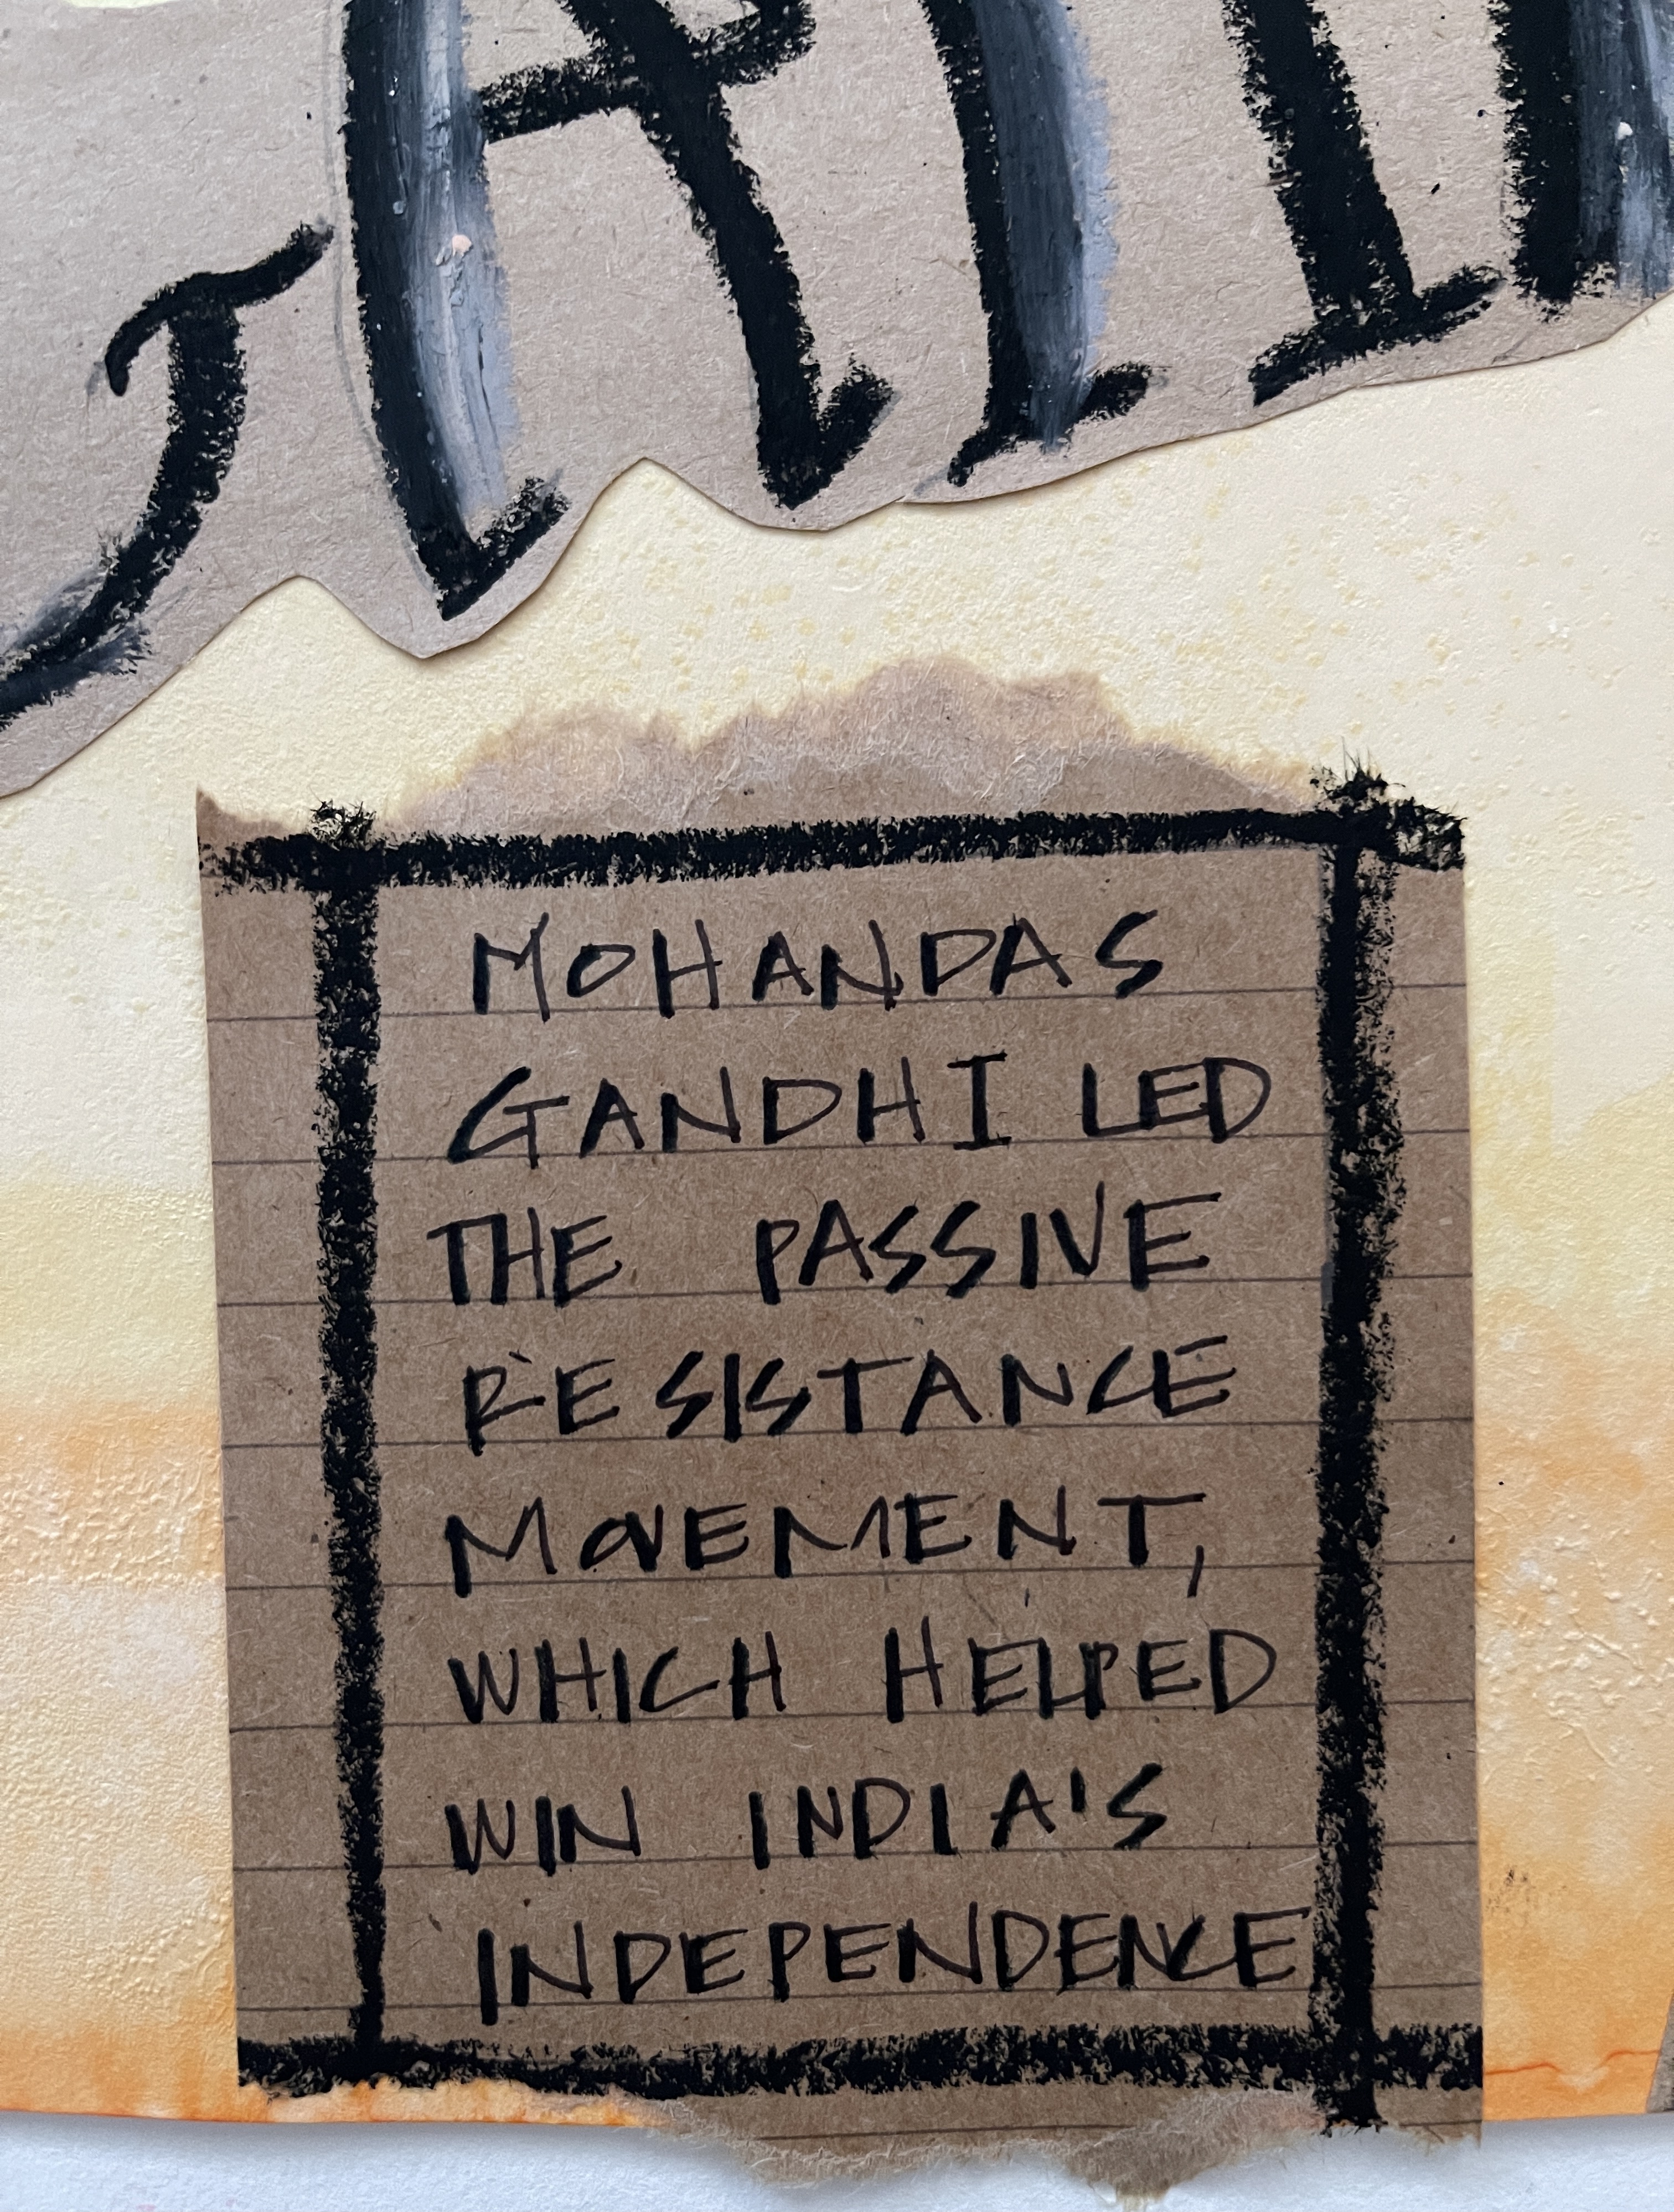 MOHANDAS
GANDHI LED
THE PASSIVE
RESISTANCE
MOVEMENT,
WHICH HELPED
WIN INDIA'S
INDEPENDENCE